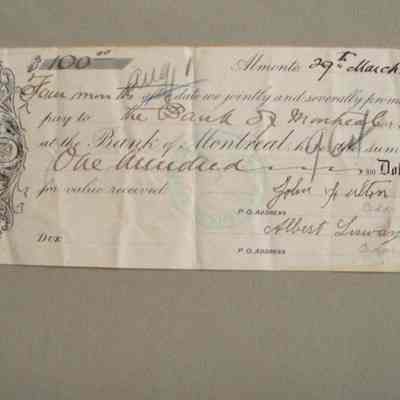 $100.00
Aug 1
Almonte 29th March
Four months after date we jointly and severally prom
pay to the Bank of Montreal or
at the Bank of Montreal here the sum
One Hundred 100 Dol
for value received John
P.O. ADDRESS
Albert
DUE
P.O. ADDRESS